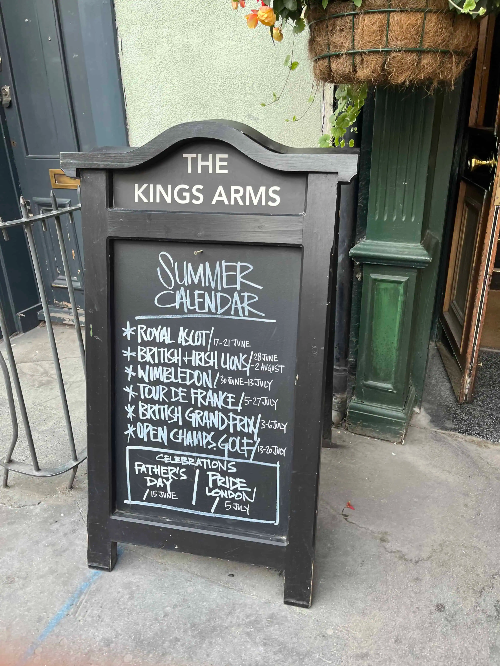 THE
KINGS ARMS
SUMMER
CALENDAR
* ROYAL ASCOT/17-21 JUNE
* BRITISH + IRISH LIONS/28 JUNE - 2 AUGUST
* WIMBLEDON/30 JUNE-13 JULY
* TOUR DE FRANCE/5-27 JULY
* BRITISH GRAND PRIX/3-6 JULY
* OPEN CHAMPS. GOLF/13-20 JULY
CELEBRATIONS
FATHER'S
DAY
/15 JUNE
PRIDE
LONDON
/5 JULY